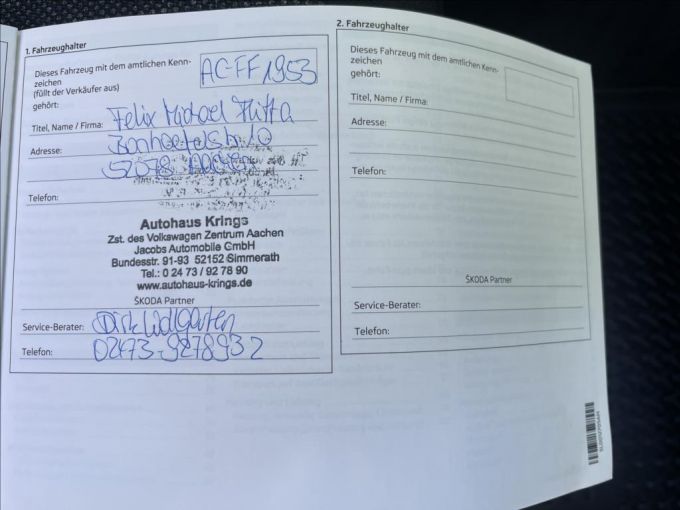 1. Fahrzeughalter
Dieses Fahrzeug mit dem amtlichen Kenn-
zeichen
(füllt der Verkäufer aus)
gehört:
AC-FF 1953
Titel, Name / Firma: Felix Michael
Adresse:
52078 Aachen
Telefon:
Autohaus Krings
Zst. des Volkswagen Zentrum Aachen
Jacobs Automobile GmbH
Bundesstr. 91-93 52152 Simmerath
Tel.: 0 24 73 / 92 78 90
www.autohaus-krings.de
ŠKODA Partner
Service-Berater: Dirk Wallgarten
Telefon: 02473-9278932
2. Fahrzeughalter
Dieses Fahrzeug mit dem amtlichen Kenn-
zeichen
gehört:
Titel, Name / Firma:
Adresse:
Telefon:
ŠKODA Partner
Service-Berater:
Telefon: